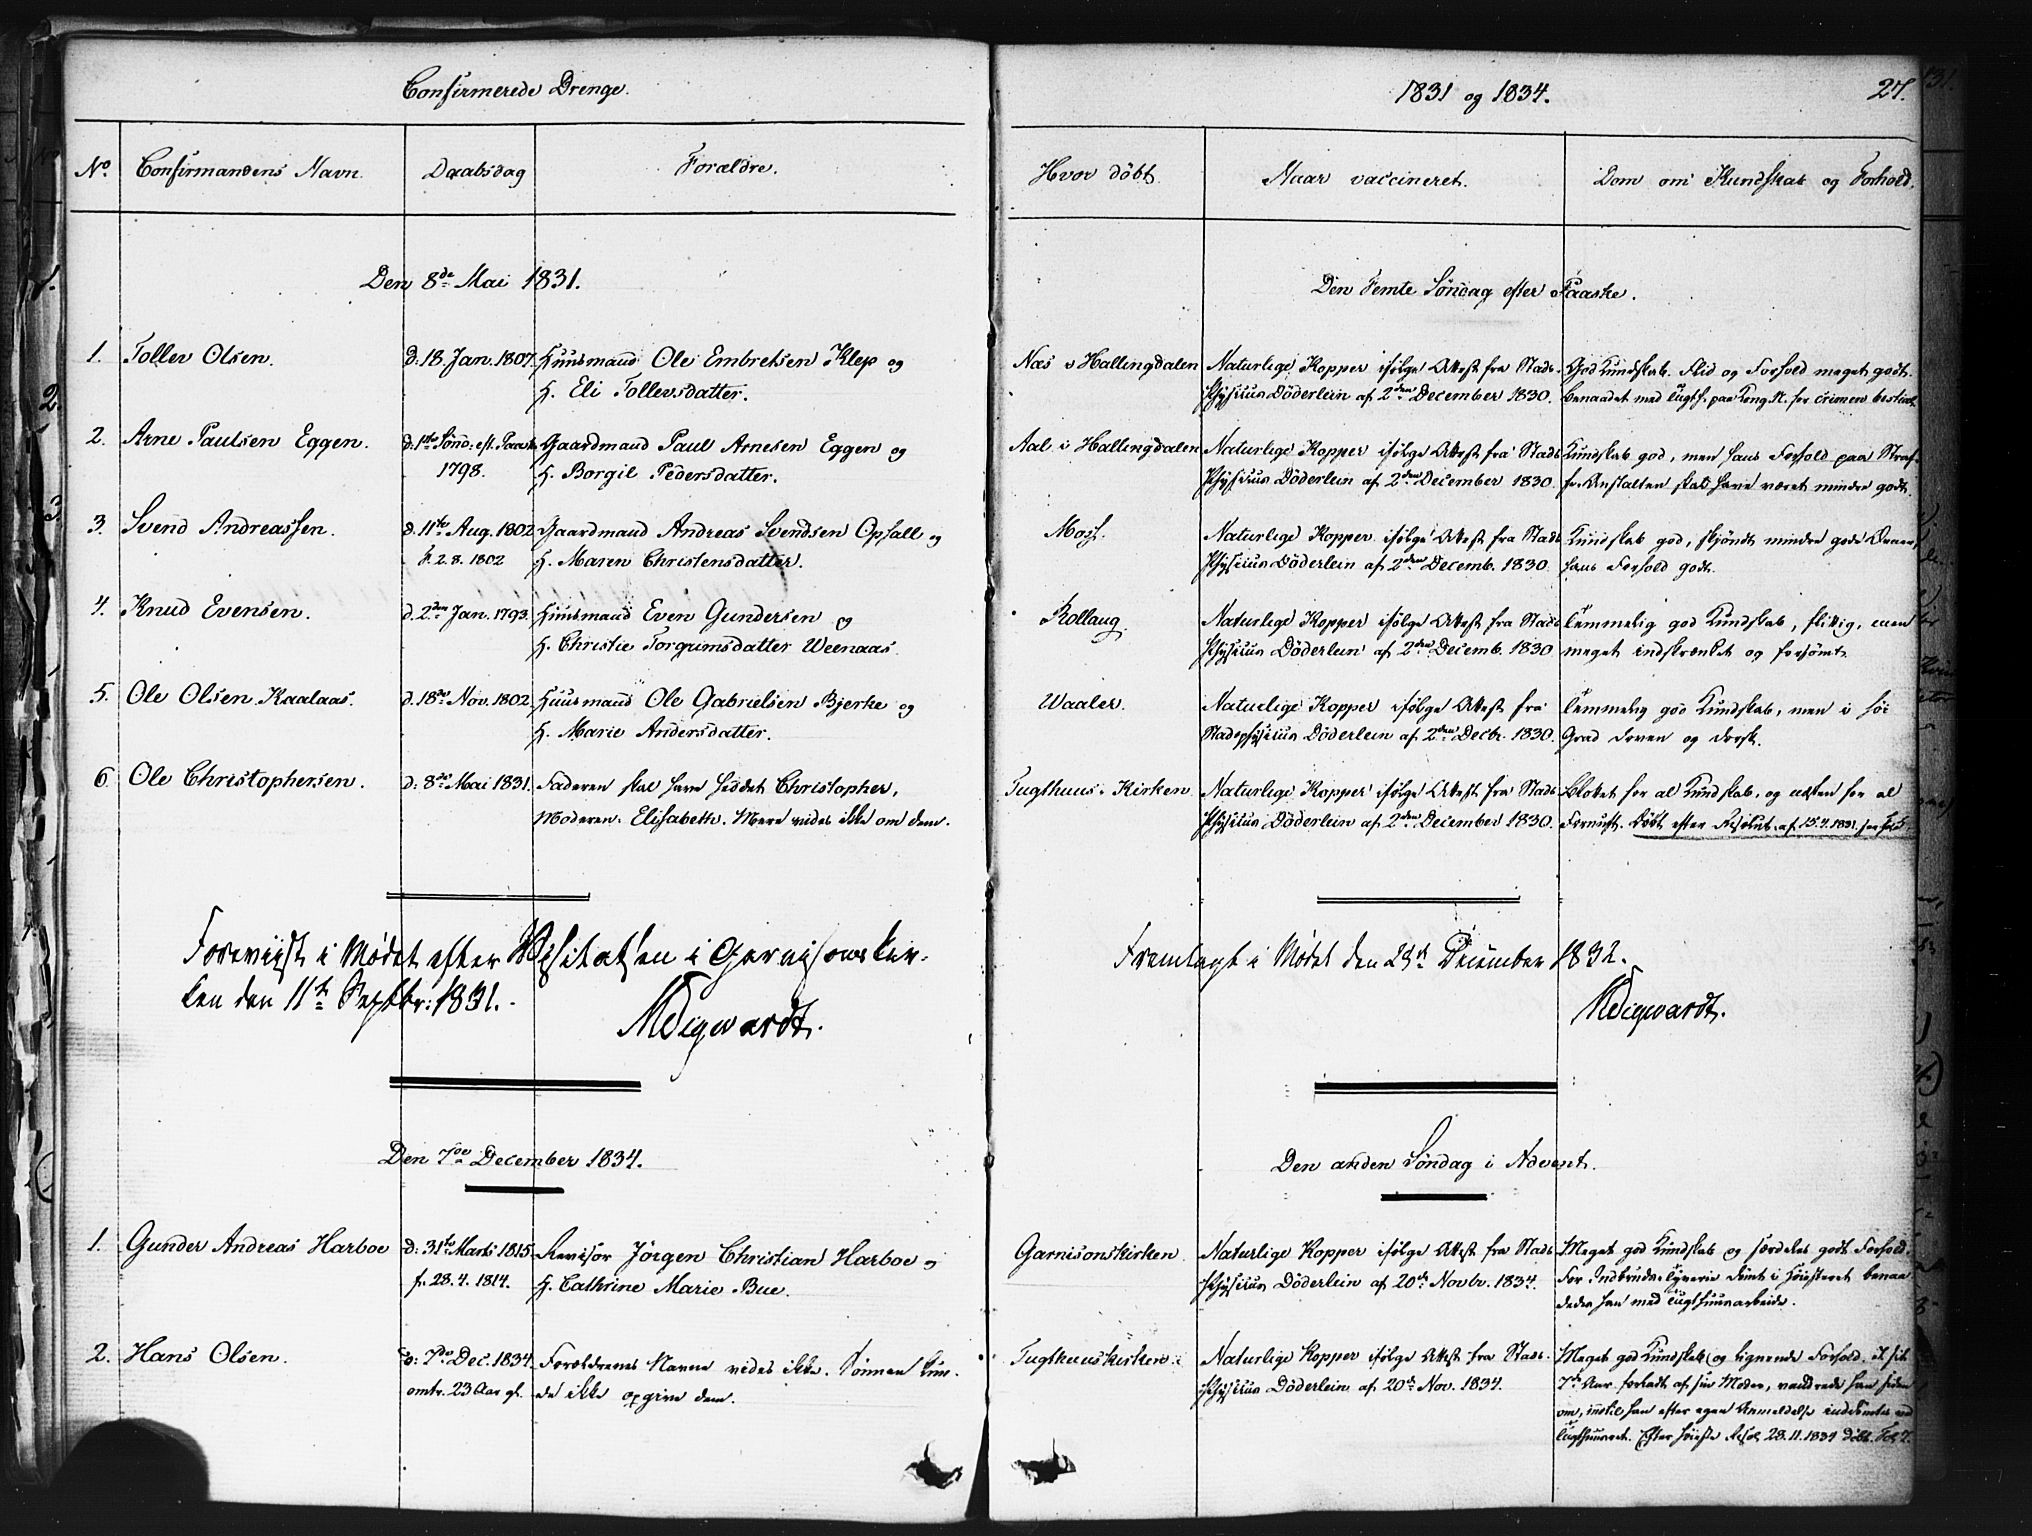 Confirmerede Drenge.
No. Confirmandens Navn. Daabsdag Forældre.
Den 8de Mai 1831.
1. Tollev Olsen. d: 18. Jan. 1807. Huusmand Ole Embretsen Klep og
H. Eli Tollevsdatter.
2. Arne Paulsen Eggen. d. 1ste Sönd: eft. Paaske Gaardmand Paul Arnesen Eggen og
1798. H. Borgil Pedersdatter.
3 Svend Andreassen. d. 11te Aug. 1802 Gaardmand Andreas Svendsen Opsall og
f. 2. 8. 1802 H. Maren Christensdatter.
4. Knud Evensen. d. 2den Jan. 1793. Huusmand Even Gundersen og
H. Christie Torgrimsdatter Weenaas.
5. Ole Olsen Kaalaas. d. 18de Nov. 1802 Huusmand Ole Gabrielsen Bjerke og
H. Marie Andersdatter.
6 Ole Christophersen. d: 8de Mai 1831. Faderen skal have heddet Christopher,
Moderen: Elisabeth. Mere vides ikke om dem.
Foreviist i Mødet efter Visitatsen i Garnisonskir-
ken den 11te Septbr: 1831.
NDigwardt.
Den 7de December 1834.
1. Gunder Andreas Harboe d: 31te Marts 1815 Revisor Jörgen Christian Harboe og
f. 28. 4. 1814. H. Cathrine Marie Bue.
2. Hans Olsen. d: 7de Dec. 1834 Forældrenes Navne vides ikke. Sönnen kun-
omtr. 23 Aar gl. de ikke opgive dem.
1831 og 1834. 27.
Hvor döbt. Naar vaccineret. Dom om Kundskab og Forhold.
Den Femte Söndag efter Paaske.
Næs i Hallingdalen Naturlige Kopper ifölge Attest fra Stads- God Kundskab. Flid og Forhold meget godt.
Physicus Döderlein af 2den December 1830. benaadet med Tugth. paa for crimen bestial.
Aal i Hallingdalen Naturlige Kopper ifölge Attest fra Stads Kundskab god, men hans Forhold paa Straf-
Physicus Döderlein af 2den December 1830. fe-Anstalten skal have været mindre godt.
Moss. Naturlige Kopper ifölge Attest fra Stads Kundskab god, skjöndt mindre gode Evner,
Physicus Döderlein af 2den Decemb. 1830. hans Forhold godt.
Rollaug. Naturlige Kopper ifölge Attest fra Stads Temmelig god Kundskab, flittig, men
Physicus Döderlein af 2den Decemb. 1830 meget indskrænket og forsömt.
Waaler. Naturlige Kopper ifölge Attest fra Temmelig god Kundskab, men i höi
Stadsphysicus Döderlein af 2den Decbr. 1830. Grad doven og dorsk.
Tugthuus-Kirken Naturlige Kopper ifölge Attest fra Stads- Blottet for al Kundskab, og næsten for al
Physicus Döderlein af 2den December 1830. Fornuft. Döbt efter Resolut. af 15.4.1831.
Fremlagt i Mödet den December 1832.
NDigwardt.
Den anden Söndag i Advent.
Garnisonskirken. Naturlige Kopper ifölge Attest fra Stads- Meget god Kundskab og særdeles godt Forhold.
Physicus Döderlein af 20de Novbr. 1834. For Indbruds-Tyverie dömt i Höiesteret benaa-
dedes han med Tugthuusarbeide.
Tugthuuskirken. Naturlige Kopper ifölge Attest fra Stads- Meget god Kundskab og lignende Forhold.
Physicus Döderlein af 20de Nov. 1834. 7de Aar forladt af sin Moder, vandrede han siden
om, indtil han efter egen Anmeldelse
Tugthuuset. Efter höieste Resol. 28.11.1834 döbt. Fol. 7.